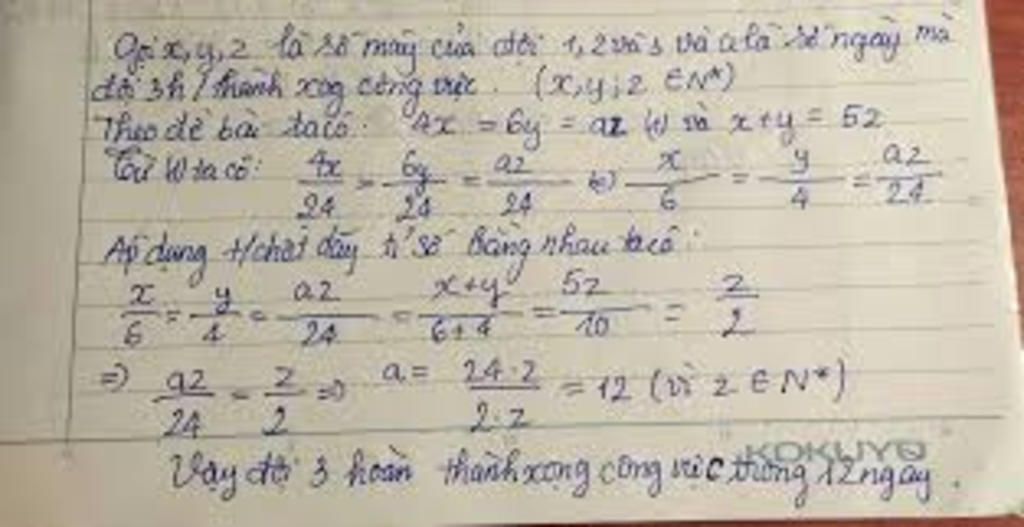 Gọi x, y, z là số máy của đội 1, 2 và 3 và a là số ngày mà
đội 3 h/thành xog công việc. (x, y, z ∈ N*)
Theo đề bài ta có: 4x = 6y = az (1) và x + y = 5z
Từ (1) ta có: 4x/24 = 6y/24 = az/24 (=) x/6 = y/4 = az/24
Áp dụng t/chất dãy tỉ số bằng nhau ta có:
x/6 = y/4 = az/24 = x+y/6+4 = 5z/10 = z/2
=) az/24 = z/2 =) a = 24.z/2.z = 12 (vì z ∈ N*)
KOKUYO
Vậy đội 3 hoàn thành xong công việc trong 12 ngày.